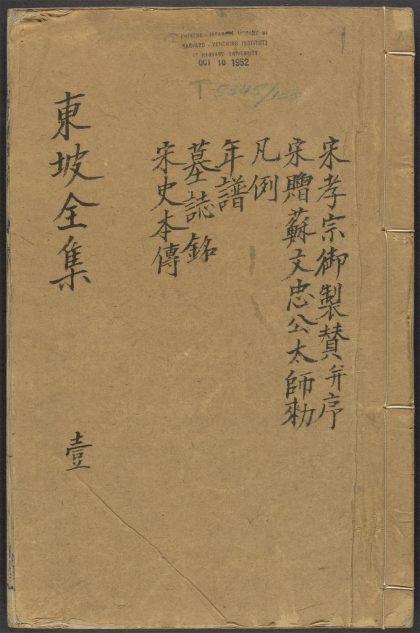 宋孝宗御製贊并序
宋贈蘇文忠公太師勑
凡例
年譜
墓誌銘
宋史本傳
東坡全集
壹
CHINESE - JAPANESE LIBRARY OF
HARVARD - YENCHING INSTITUTE
AT HARVARD UNIVERSITY
OCT 10 1952